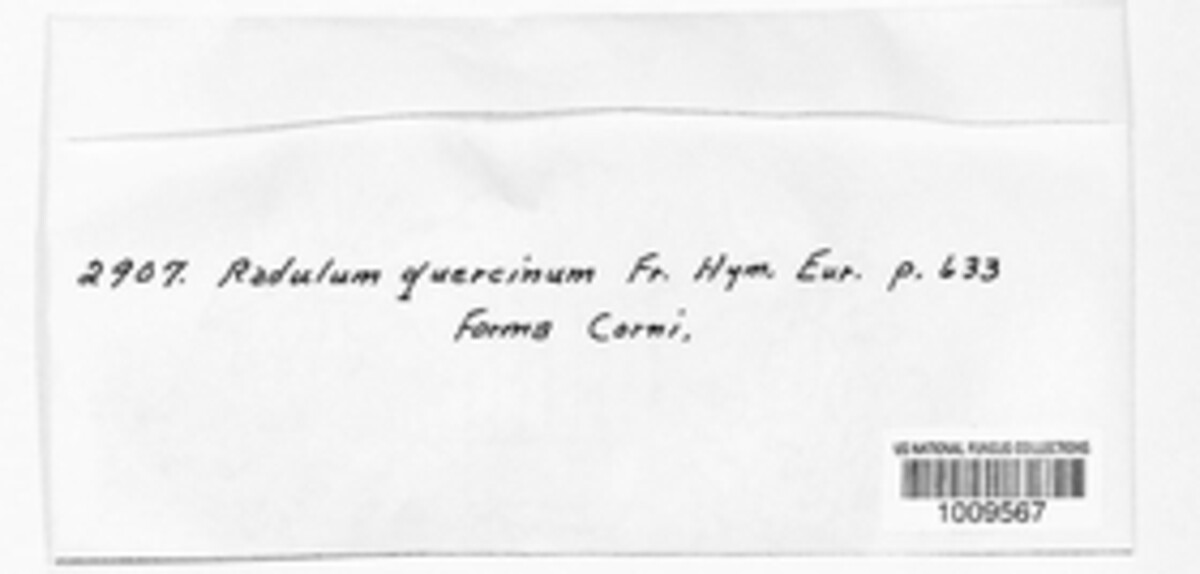 2907. Radulum quercinum Fr. Hym. Eur. p. 633
Forma Corni.
US NATIONAL FUNGUS COLLECTIONS
1009567